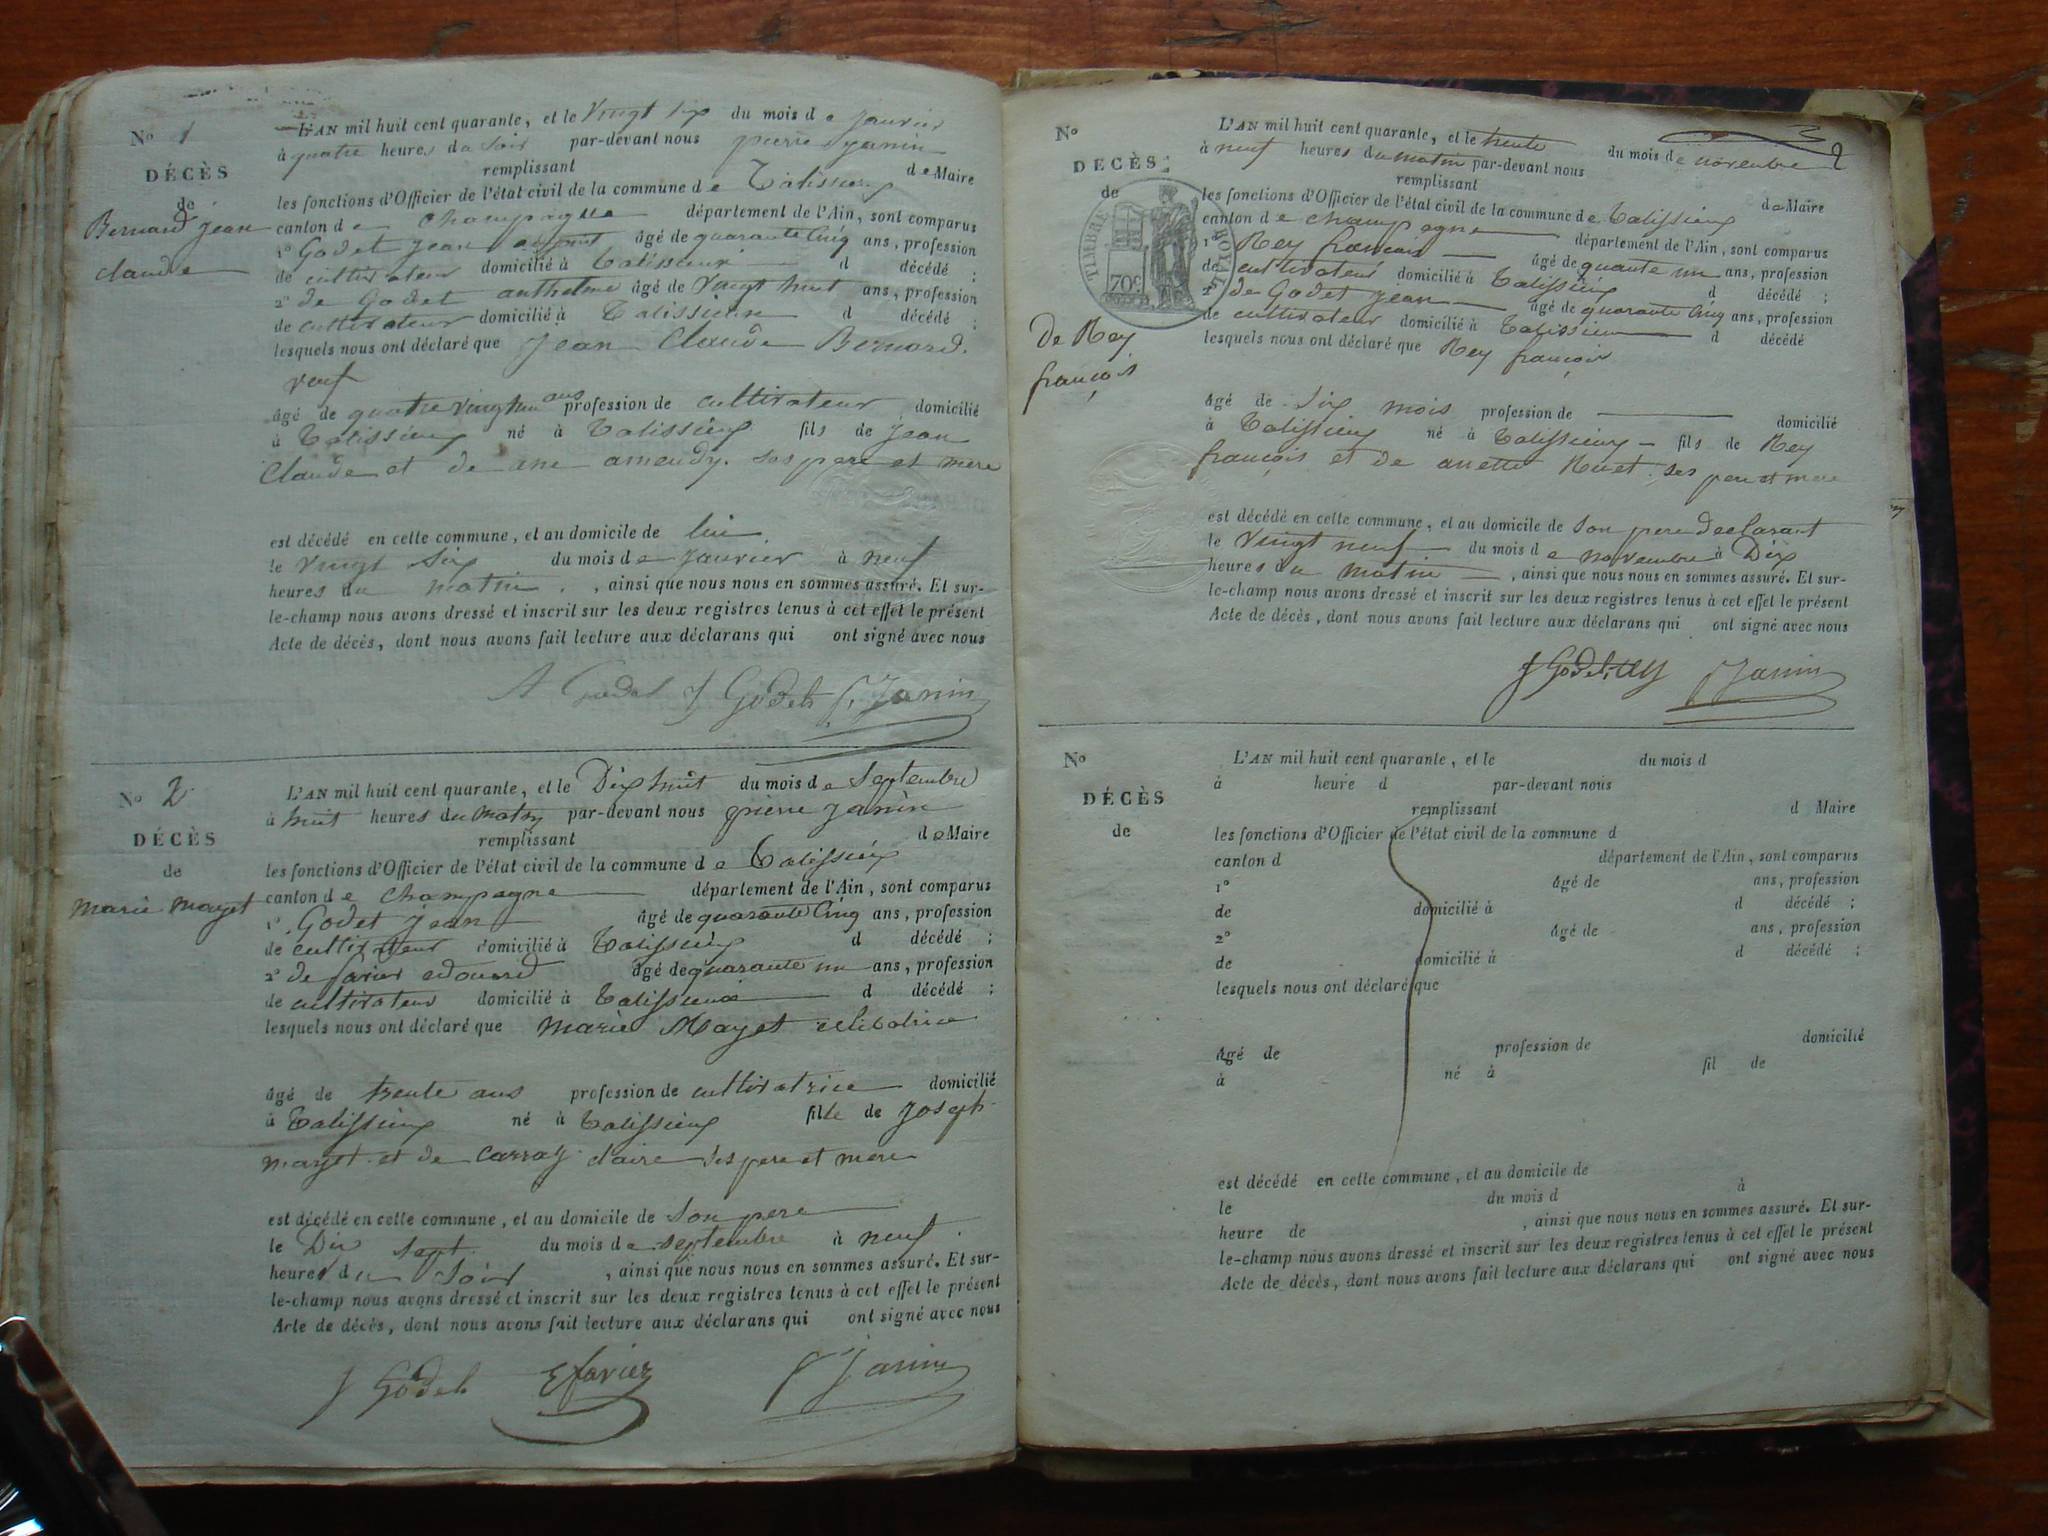 No 1
DÉCÈS
de
Bernard jean
claude
L'AN mil huit cent quarante, et le vingt six du mois de janvier
à quatre heures du soir par-devant nous pierre janin
remplissant de Maire
les fonctions d'Officier de l'état civil de la commune de Talissieux
canton de champagne département de l'Ain, sont comparus
1° Godet jean âgé de quarante cinq ans, profession
de cultivateur domicilié à Talissieux d décédé ;
2° de Godet anthelme âgé de vingt huit ans, profession
de cultivateur domicilié à Talissieux d décédé ;
lesquels nous ont déclaré que jean Claude Bernard.
veuf
âgé de quatre vingt un ans profession de cultivateur domicilié
à Talissieux né à Talissieux fils de jean
Claude et de ane amendy. ses pere et mere
est décédé en cette commune, et au domicile de lui
le vingt six du mois de janvier à neuf
heures du matin , ainsi que nous nous en sommes assuré. Et sur-
le-champ nous avons dressé et inscrit sur les deux registres tenus à cet effet le présent
Acte de décès, dont nous avons fait lecture aux déclarans qui ont signé avec nous
A Godet J Godet P. Janin
No 2
DÉCÈS
de
marie mayet
L'AN mil huit cent quarante, et le Dix huit du mois de septembre
à huit heures du matin par-devant nous pierre janin
remplissant de Maire
les fonctions d'Officier de l'état civil de la commune de Talissieux
canton de champagne département de l'Ain, sont comparus
1° Godet jean âgé de quarante cinq ans, profession
de cultivateur domicilié à Talissieux d décédé ;
2° de favier edouard âgé de quarante un ans, profession
de cultivateur domicilié à Talissieux d décédé ;
lesquels nous ont déclaré que marie Mayet celibatrice
âgé de trente ans profession de cultivatrice domicilié
à Talissieux né à Talissieux fille de joseph
mayet et de carray claire ses pere et mere
est décédé en cette commune, et au domicile de son pere
le Dix sept du mois de septembre à neuf
heures du soir , ainsi que nous nous en sommes assuré. Et sur-
le-champ nous avons dressé et inscrit sur les deux registres tenus à cet effet le présent
Acte de décès, dont nous avons fait lecture aux déclarans qui ont signé avec nous
J Godet E favier P Janin
2
No
DECÈS
de
TIMBRE ROYAL
70c
de Rey
françois
L'AN mil huit cent quarante, et le trente du mois de novembre
à neuf heures du matin par-devant nous
remplissant de Maire
les fonctions d'Officier de l'état civil de la commune de Talissieux
canton de champagne département de l'Ain, sont comparus
1° Rey francois âgé de quante un ans, profession
de cultivateur domicilié à Talissieux d décédé ;
2° de Godet jean âgé de quarante cinq ans, profession
de cultivateur domicilié à Talissieux d décédé
lesquels nous ont déclaré que Rey françois
âgé de six mois profession de domicilié
à Talissieux né à Talissieux fils de Rey
françois et de anette Ruet ses pere et mere
est décédé en cette commune, et au domicile de son pere declarant
le vingt neuf du mois de novembre à Dix
heures du matin , ainsi que nous nous en sommes assuré. Et sur-
le-champ nous avons dressé et inscrit sur les deux registres tenus à cet effet le présent
Acte de décès, dont nous avons fait lecture aux déclarans qui ont signé avec nous
J Godet Rey P Janin
No
DÉCÈS
de
L'AN mil huit cent quarante, et le du mois d
à heure d par-devant nous
remplissant d Maire
les fonctions d'Officier de l'état civil de la commune d
canton d département de l'Ain, sont comparus
1° âgé de ans, profession
de domicilié à d décédé ;
2° âgé de ans, profession
de domicilié à d décédé ;
lesquels nous ont déclaré que
âgé de profession de domicilié
à né à fil de
est décédé en cette commune, et au domicile de
le du mois d à
heure de , ainsi que nous nous en sommes assuré. Et sur-
le-champ nous avons dressé et inscrit sur les deux registres tenus à cet effet le présent
Acte de décès, dont nous avons fait lecture aux déclarans qui ont signé avec nous